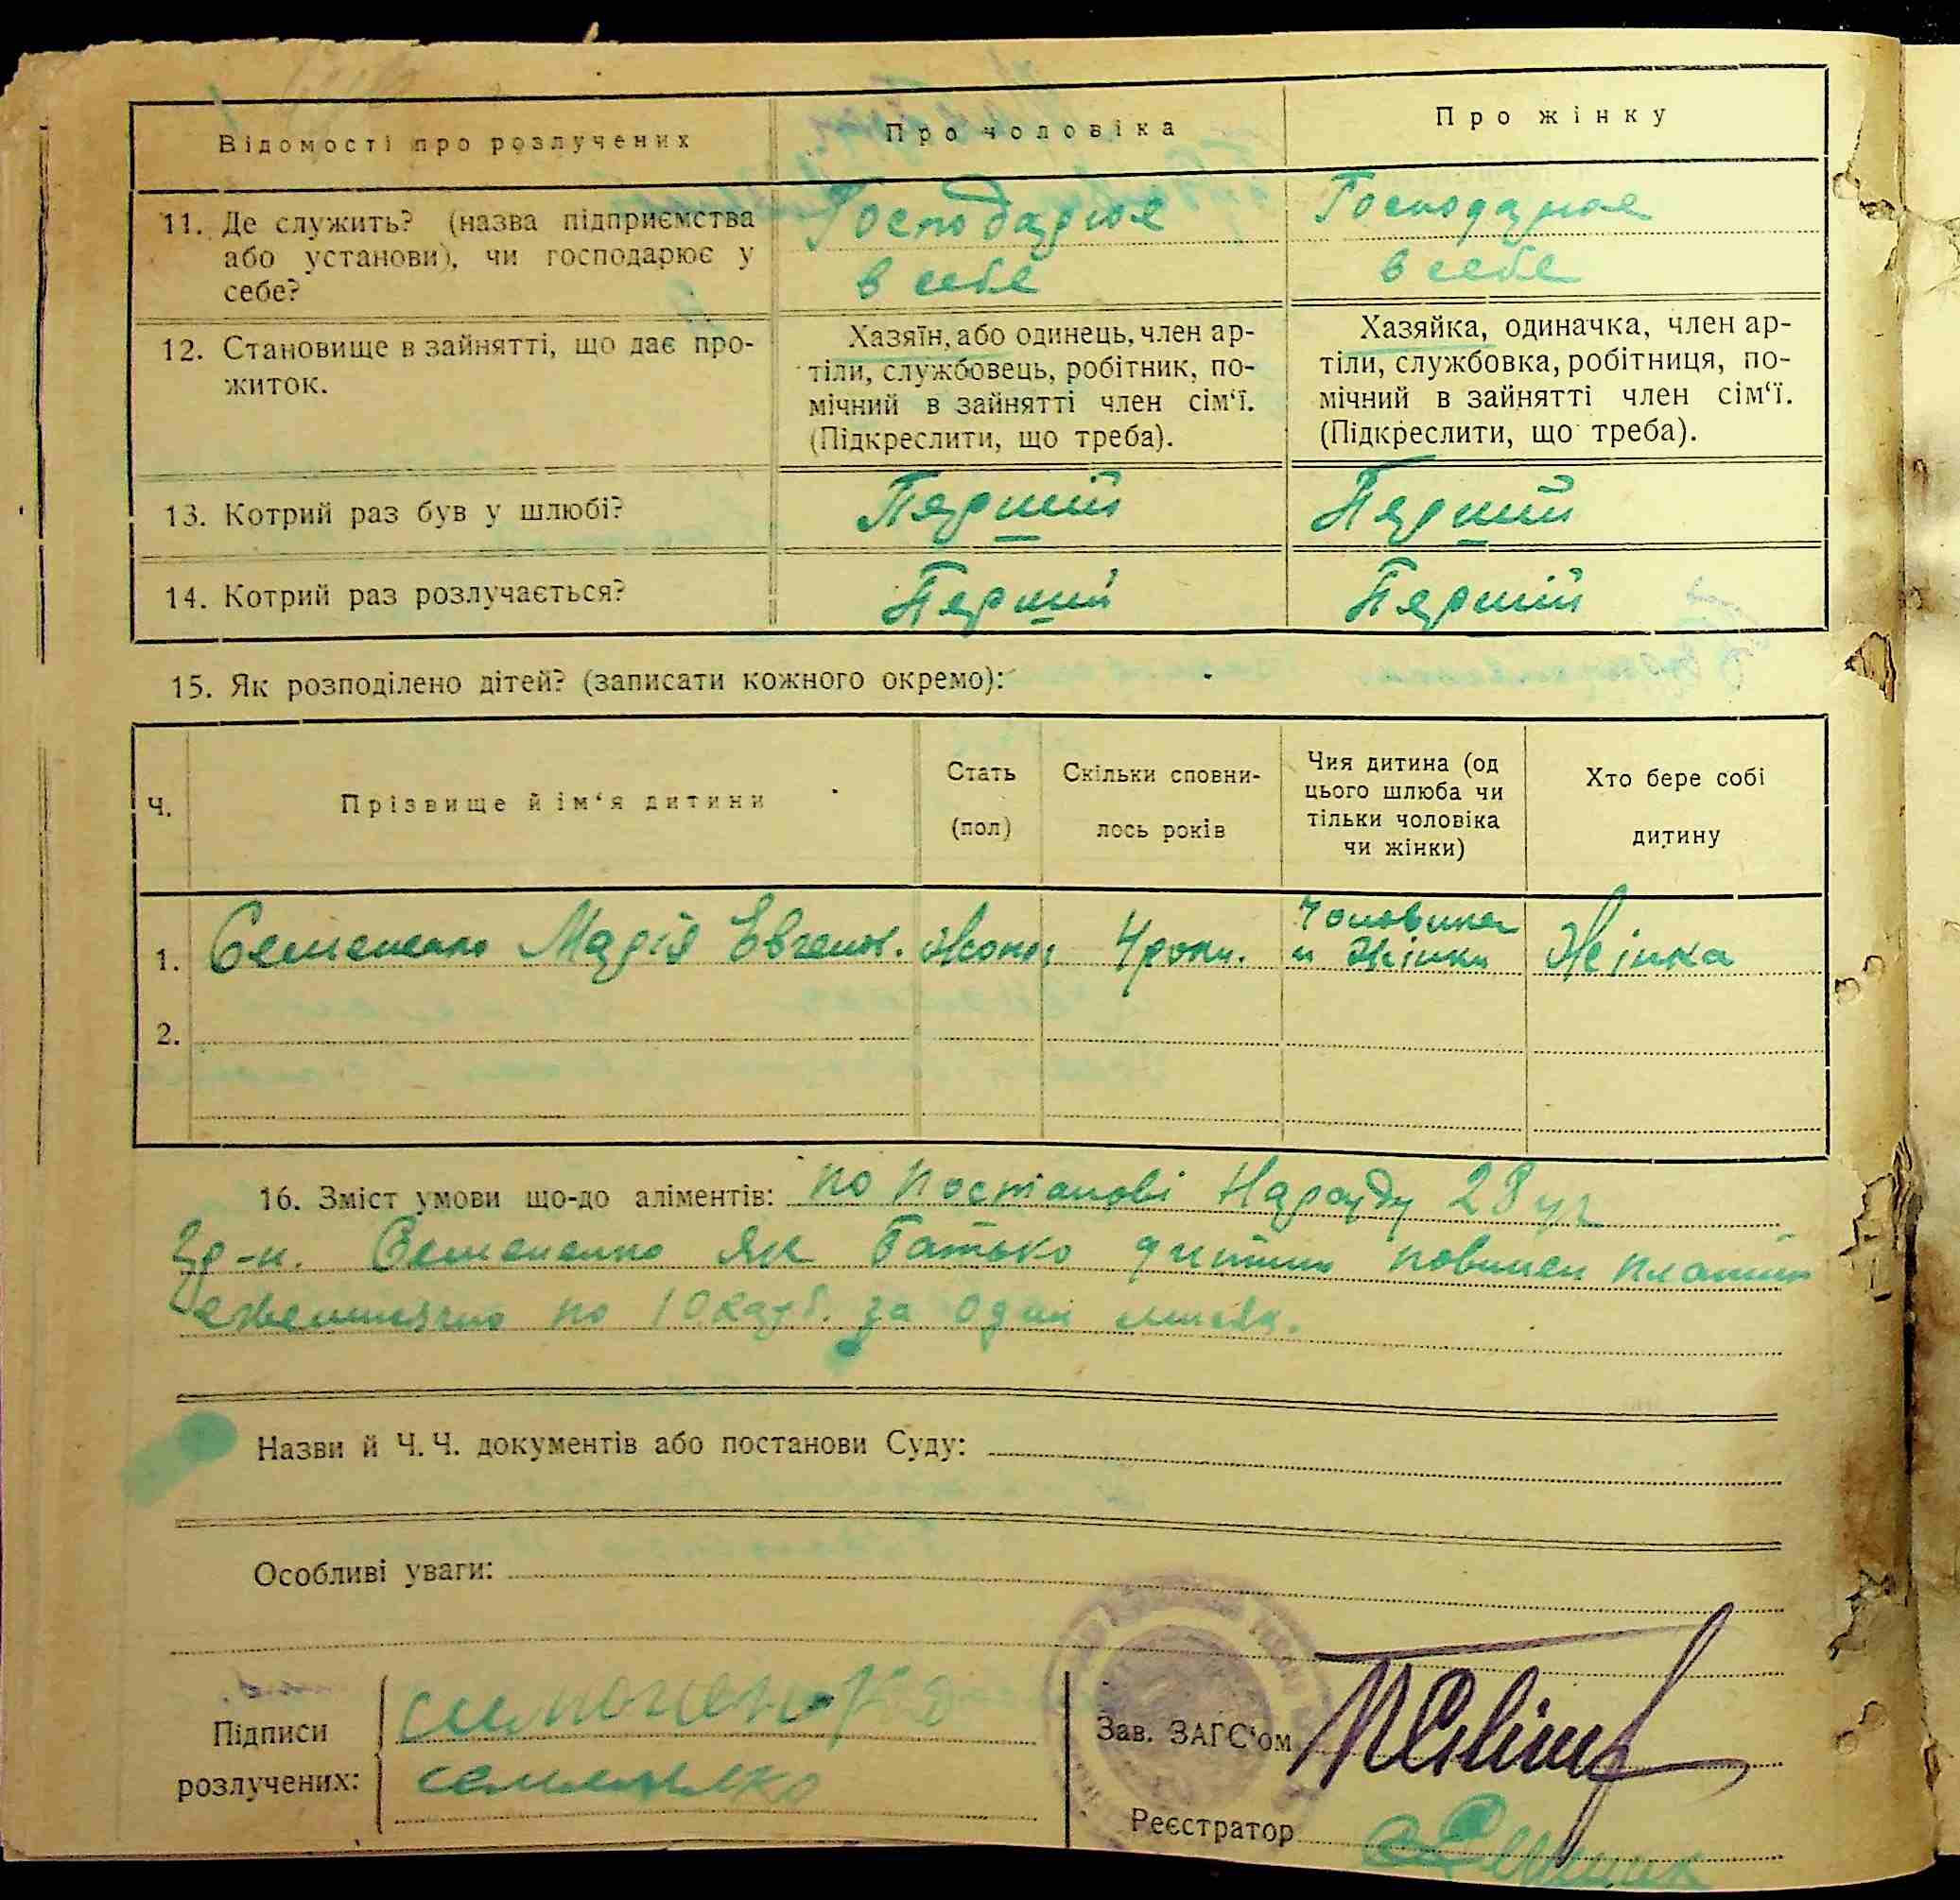 Відомості про розлучених
Про чоловіка
Про жінку
11. Де служить? (назва підприємства
або установи), чи господарює у
себе?
Господарює
в себе
Господарює
в себе
12. Становище в зайнятті, що дає про-
житок.
Хазяїн, або одинець, член ар-
тіли, службовець, робітник, по-
мічний в зайнятті член сім‘ї.
(Підкреслити, що треба).
Хазяйка, одиначка, член ар-
тіли, службовка, робітниця, по-
мічний в зайнятті член сім‘ї.
(Підкреслити, що треба).
13. Котрий раз був у шлюбі?
Перший
Перший
14. Котрий раз розлучається?
Перший
Перший
15. Як розподілено дітей? (записати кожного окремо):
Ч.
Прізвище й ім‘я дитини
Стать
(пол)
Скільки сповни-
лось років
Чия дитина (од
цього шлюба чи
тільки чоловіка
чи жінки)
Хто бере собі
дитину
1. Семененко Марія Евген. Жоно 4 роки.
Чоловика
и Жінки
Жінка
2.
16. Зміст умови що-до аліментів: по постанові Нарсуду 28
гр-н. Семененко як батько дитини повинен платити
ежемисячно по 10 карб. за один мисяц.
Назви й Ч. Ч. документів або постанови Суду:
Особливі уваги:
Підписи
розлучених:
семененко
Зав. ЗАГС‘ом
Реєстратор